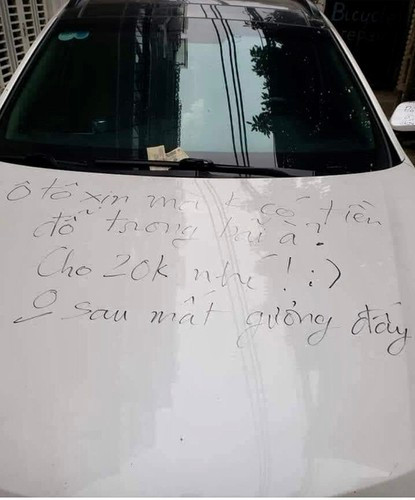 BICYCLE
Ô tô xịn mà k có tiền
đỗ trong bãi à?
Cho 20k nhé! :)
lần sau mất gương đấy